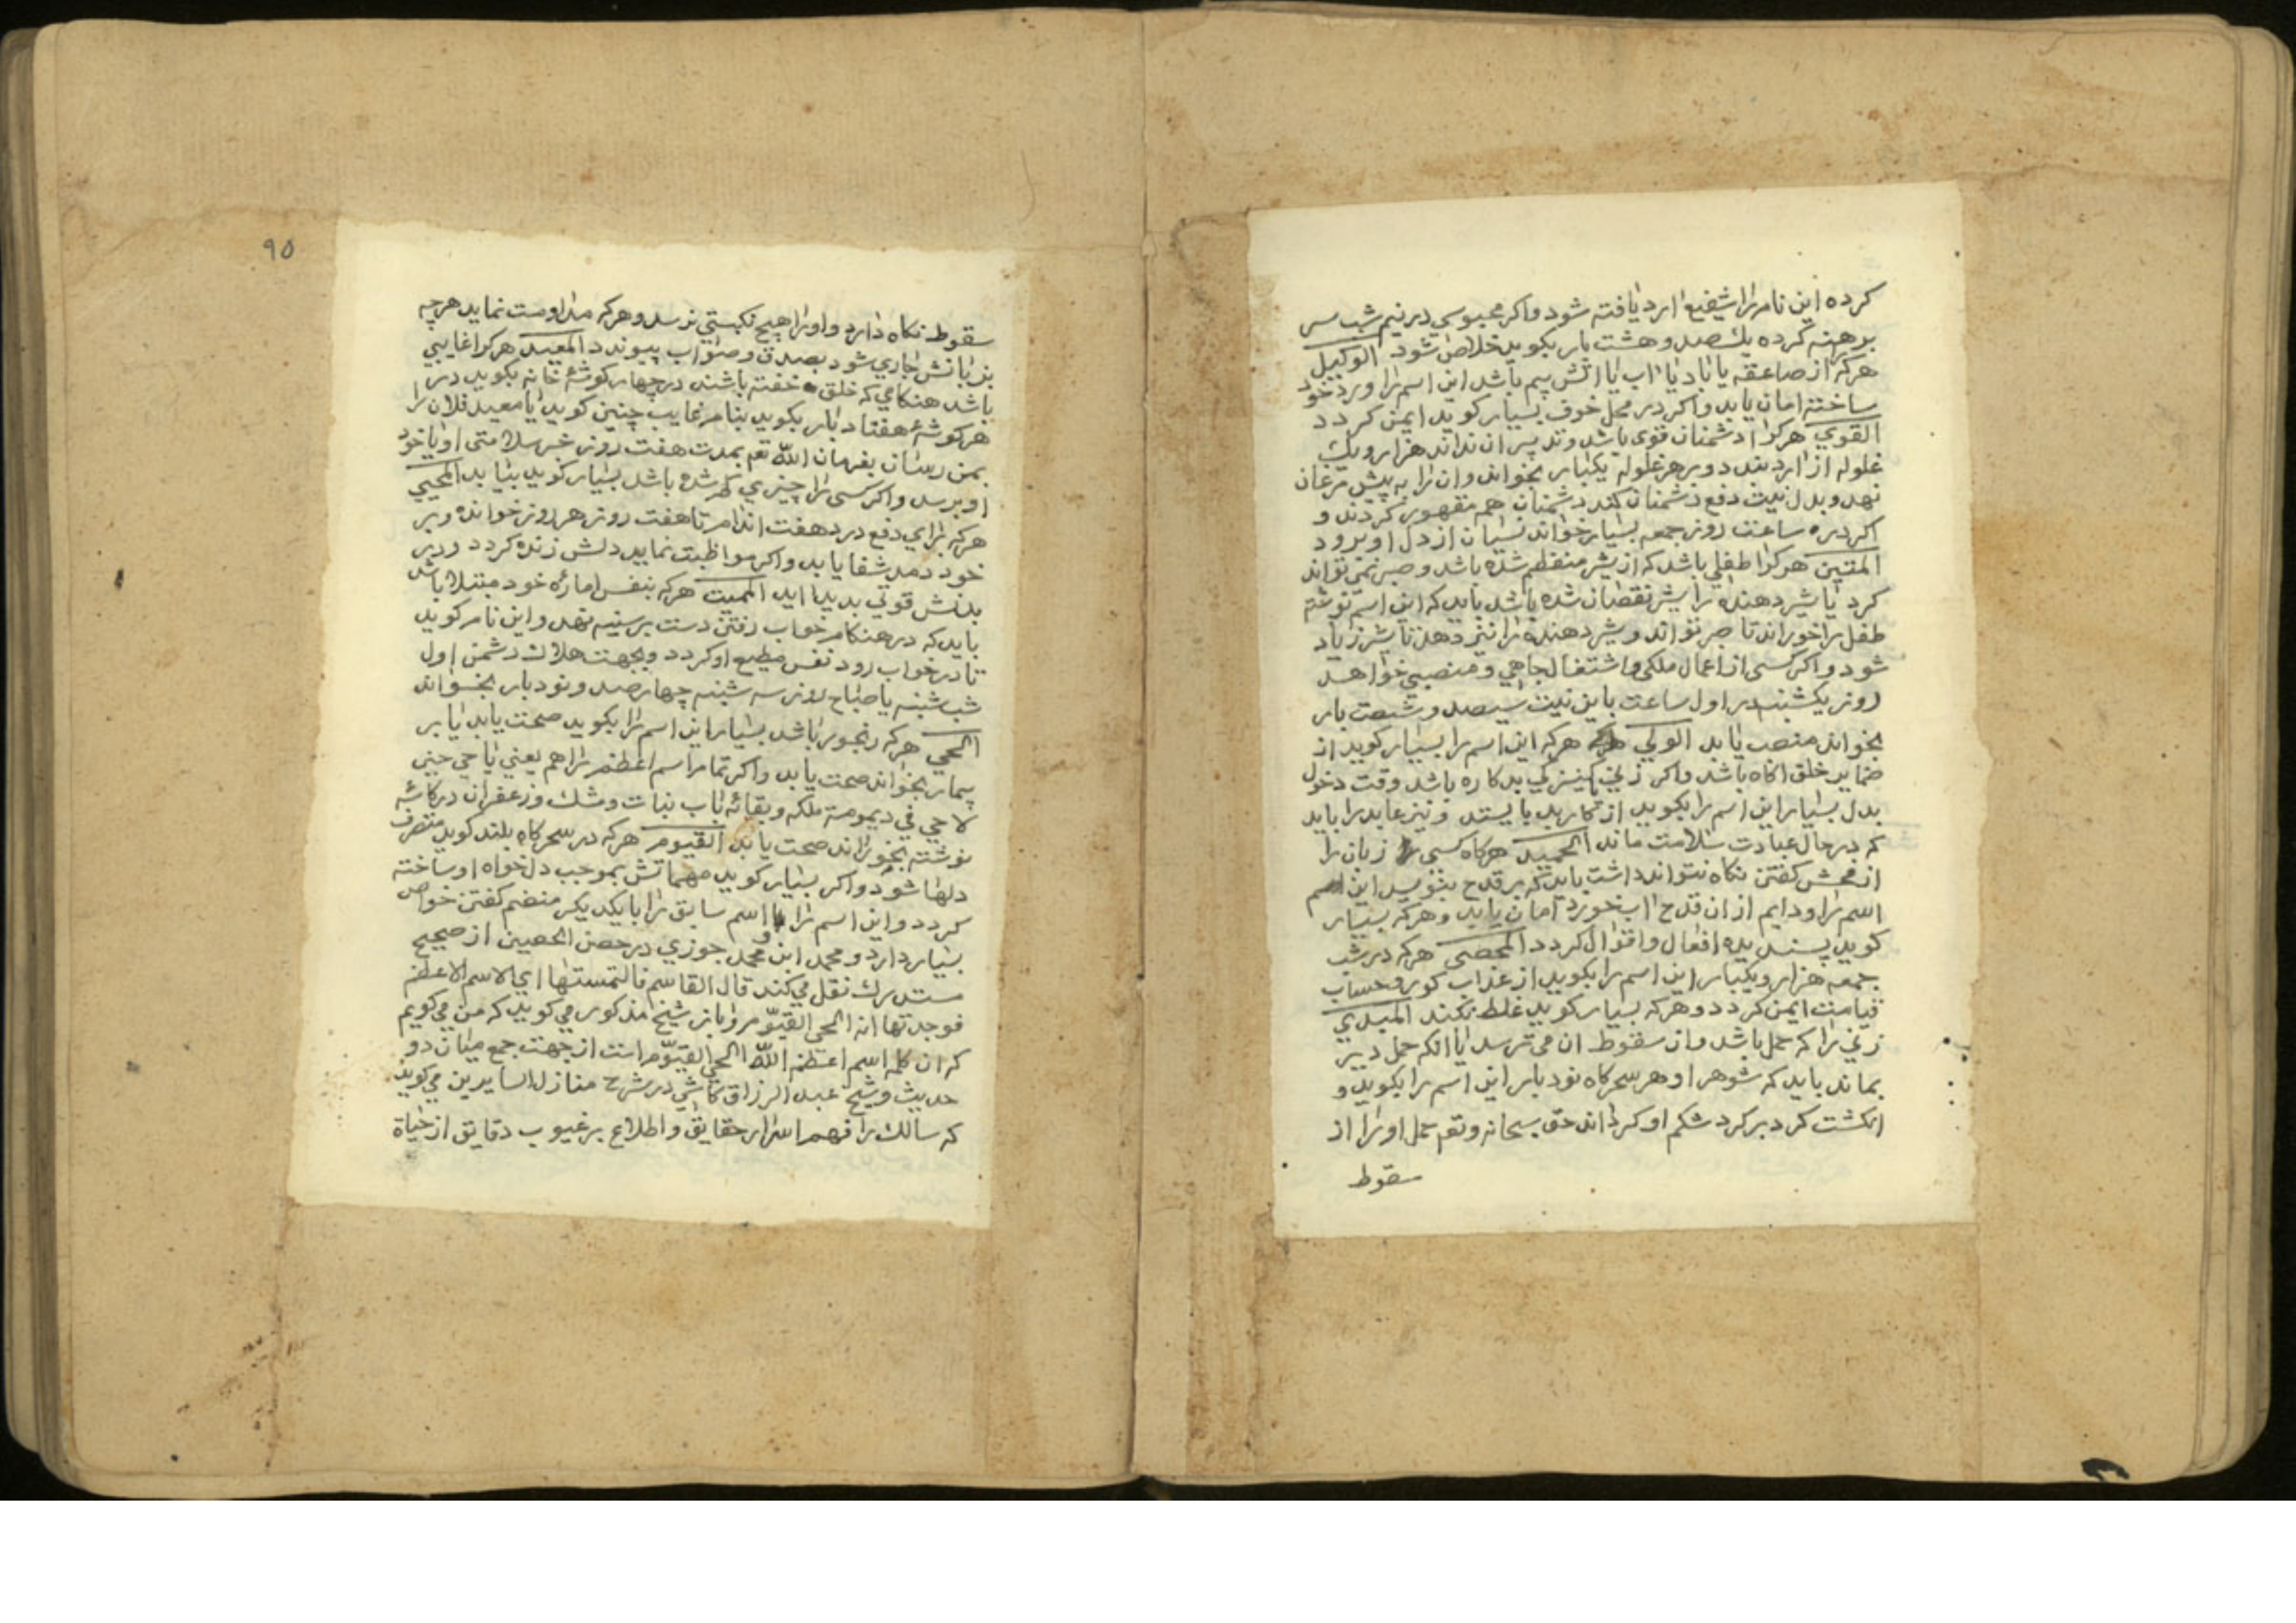 کرده این نام را شفیع ارد یافته شود واکر محبوسی در نیم شب سر
برهنه کرده یك صد و هشت بار بکوید خلاص شود الوکیل
هرکه از صاعقه یا باد یا اب یا اتش بیم باشد این اسم را ورد خود
ساخته امان یابد واکر در محل خوف بسیار کوید ایمن کردد
القوي هرکرا دشمنان قوی باشد وتدبیر ان نداند هزار ویك
غلوله از ارد بندد وبر هر غلوله یکبار بخواند وان را به پیش مرغان
نهد وبدل نیت دفع دشمنان کند دشمنان هم مقهور کردند و
اکر در ساعت روز جمعه بسیار خواند نسیان از دل او برود
المتین هرکرا طفلی باشد که از شیر منفطم شده باشد وصبر نمی تواند
کرد یا شیر دهنده را شیر نقصان شده باشد باید که این اسم نوشته
طفل را خوراند تا صبر تواند وشیر دهنده را نیز دهد تا شیر زیاد
شود واکر کسی از اعمال ملکی واشتغال جاهی ومنصبی خواهد
روز یکشنبه در اول ساعت باین نیت سیصد وشصت بار
بخواند منصب یابد الولي هرکه این اسم را بسیار کوید از
ضمایر خلق اکاه باشد واکر زني کنیزکي بدکاره باشد وقت دخول
بدل بسیار این اسم را بکوید از کار بد بایستد ونیز عابد را باید
که در حال عبادت سلامت ماند الحمید هرکاه کسی زبان را
از فحش کفتن نکاه نتواند داشت باید که بر قدح بنویسد این
اسم را ودایم از ان قدح اب خورد امان یابد وهرکه بسیار
کوید پسندیده افعال واقوال کردد المحصی هرکه در شب
جمعه هزار ویکبار این اسم را بکوید از عذاب کور وحساب
قیامت ایمن کردد وهرکه بسیار کوید غلط نکند المبدي
زنی را که حمل باشد واز سقوط ان می ترسد یا انکه حمل دیر
بماند باید که شوهر او هر سحرکاه نود بار این اسم را بکوید و
انکشت کرد بر کرد شکم او کرداند حق سبحانه وتعم حمل او را از
سقوط
٩٥
سقوط نکاه دارد واو را هیچ نکبتي نرسد وهرکه مداومت نماید هرچه
بزبانش جاري شود بصدق وصواب پیوندد المعید هرکرا غایبي
باشد هنکامي که خلق خفته باشند در چهار کوشهٔ خانه بکوید در
هر کوشهٔ هفتاد بار بکوید بنام غایب چنین کوید یا معید فلان را
بمن رسان بفرمان الله تعم بمدت هفت روز خبر سلامتی او یا خود
او برسد واکر کسی را چیزي کم شده باشد بسیار کوید بیابد المحیي
هرکه برای دفع درد هفت اندام تا هفت روز هر روز خوانده وبر
خود دمد شفا یابد واکر مواظبت نماید دلش زنده کردد ودر
بدنش قوتي بدید اید الممیت هرکه بنفس اماره خود مبتلا باشد
باید که در هنکام خواب رفتن دست بر سینه نهد واین نام کوید
تا در خواب رود نفس مطیع او کردد وبجهت هلاك دشمن اول
شب شنبه یا صباح روز سه شنبه چهارصد ونود بار بخواند
الحي هرکه رنجور باشد بسیار این اسم را بکوید صحت یابد یا بر
بیمار بخواند صحت یابد واکر تمام اسم اعظم را هم یعني یا حي حین
لا حي في دیمومة ملکه وبقائه باب نبات ومشك وزعفران در کاسه
نوشته بخوراند صحت یابد القیوم هرکه در سحرکاه بلند کوید متصرف
دلها شود واکر بسیار کوید مهماتش بموجب دلخواه او ساخته
کردد واین اسم را با اسم سابق را با یکدیکر منضم کفتن خواص
بسیار دارد ومحمد ابن محمد جوزي در حصن الحصین از صحیح
مستدرك نقل می کند قال القاسم فالتمستها اي الاسم الاعظم
فوجدتها انه الحی القیّوم وباز شیخ مذکور می کوید که من می کویم
که ان کلمه اسم اعظم الله الحي القیّوم است از جهت جمع میان دو
حدیث وشیخ عبد الرزاق کاشي در شرح منازل السایرین می کوید
که سالك را فهم اسرار حقایق واطلاع بر غیوب دقایق از حیاة